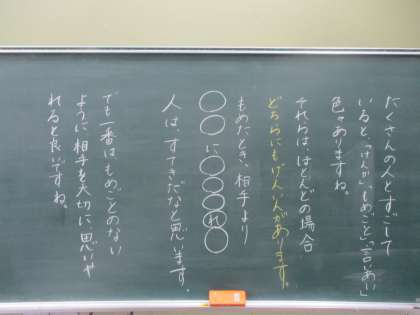 たくさんの人とすごして
いると、「けんか」「もめごと」「言い合い」
色々ありますね。
それらは、ほとんどの場合
どちらにもげんいんがあります。
もめたとき、相手より
○○に○○○れ○
人は、すてきだなと思います。
でも一番は、もめごとのない
ように相手を大切に思いや
れると良いですね。